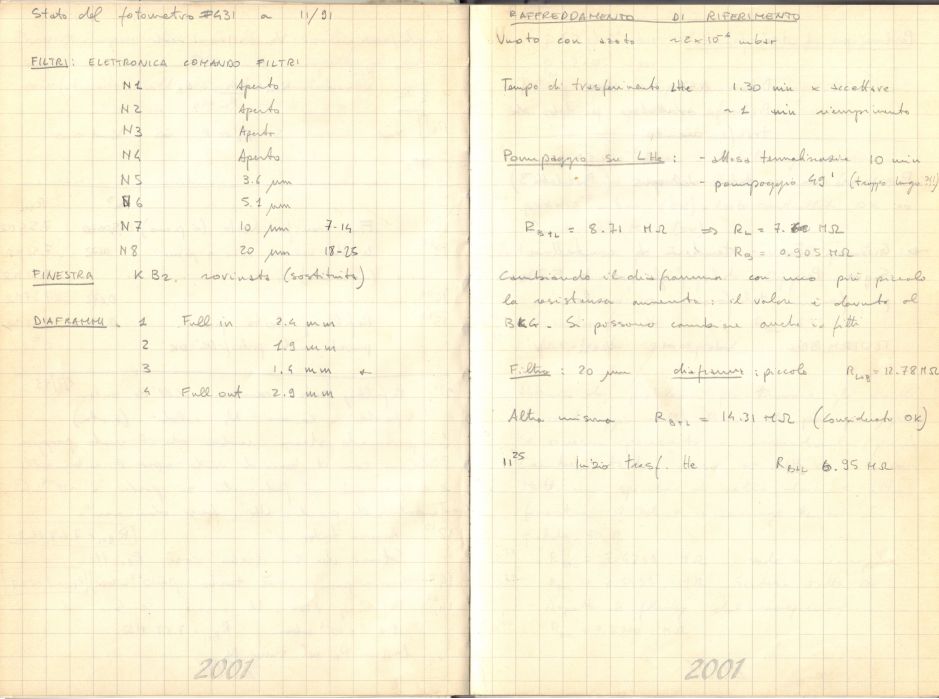 Stato del fotometro #431 a 11/91
FILTRI: ELETTRONICA COMANDO FILTRI
N1 Aperto
N2 Aperto
N3 Aperto
N4 Aperto
N5 3.6 μm
N6 5.1 μm
N7 10 μm 7-14
N8 20 μm 18-25
FINESTRA KBr. rovinata (sostituita)
DIAFRAMMI. 1 Full in 2.4 mm
2 1.9 mm
3 1.4 mm ←
4 Full out 2.9 mm
2001
RAFFREDDAMENTO DI RIFERIMENTO
Vuoto con azoto ~2×10⁻⁶ mbar
Tempo di trasferimento LHe 1.30 min × accettare
~ 1 min riempimento
Pompaggio su LHe: - attesa termalizzazione 10 min
- pompaggio 49' (troppo lungo ?!!)
R_B+L = 8.71 MΩ ⇒ R_L = 7. MΩ
R_B = 0.905 MΩ
Cambiando il diaframma con uno più piccolo
la resistenza aumenta: il valore è dovuto al
BKG. Si possono cambiare anche i filtri
Filtro: 20 μm diaframma: piccolo R_L+B = 12.78 MΩ
Altra misura R_B+L = 14.31 MΩ (Considerato OK)
11²⁵ Inizio trasf. He R_B+L 6.95 MΩ
2001